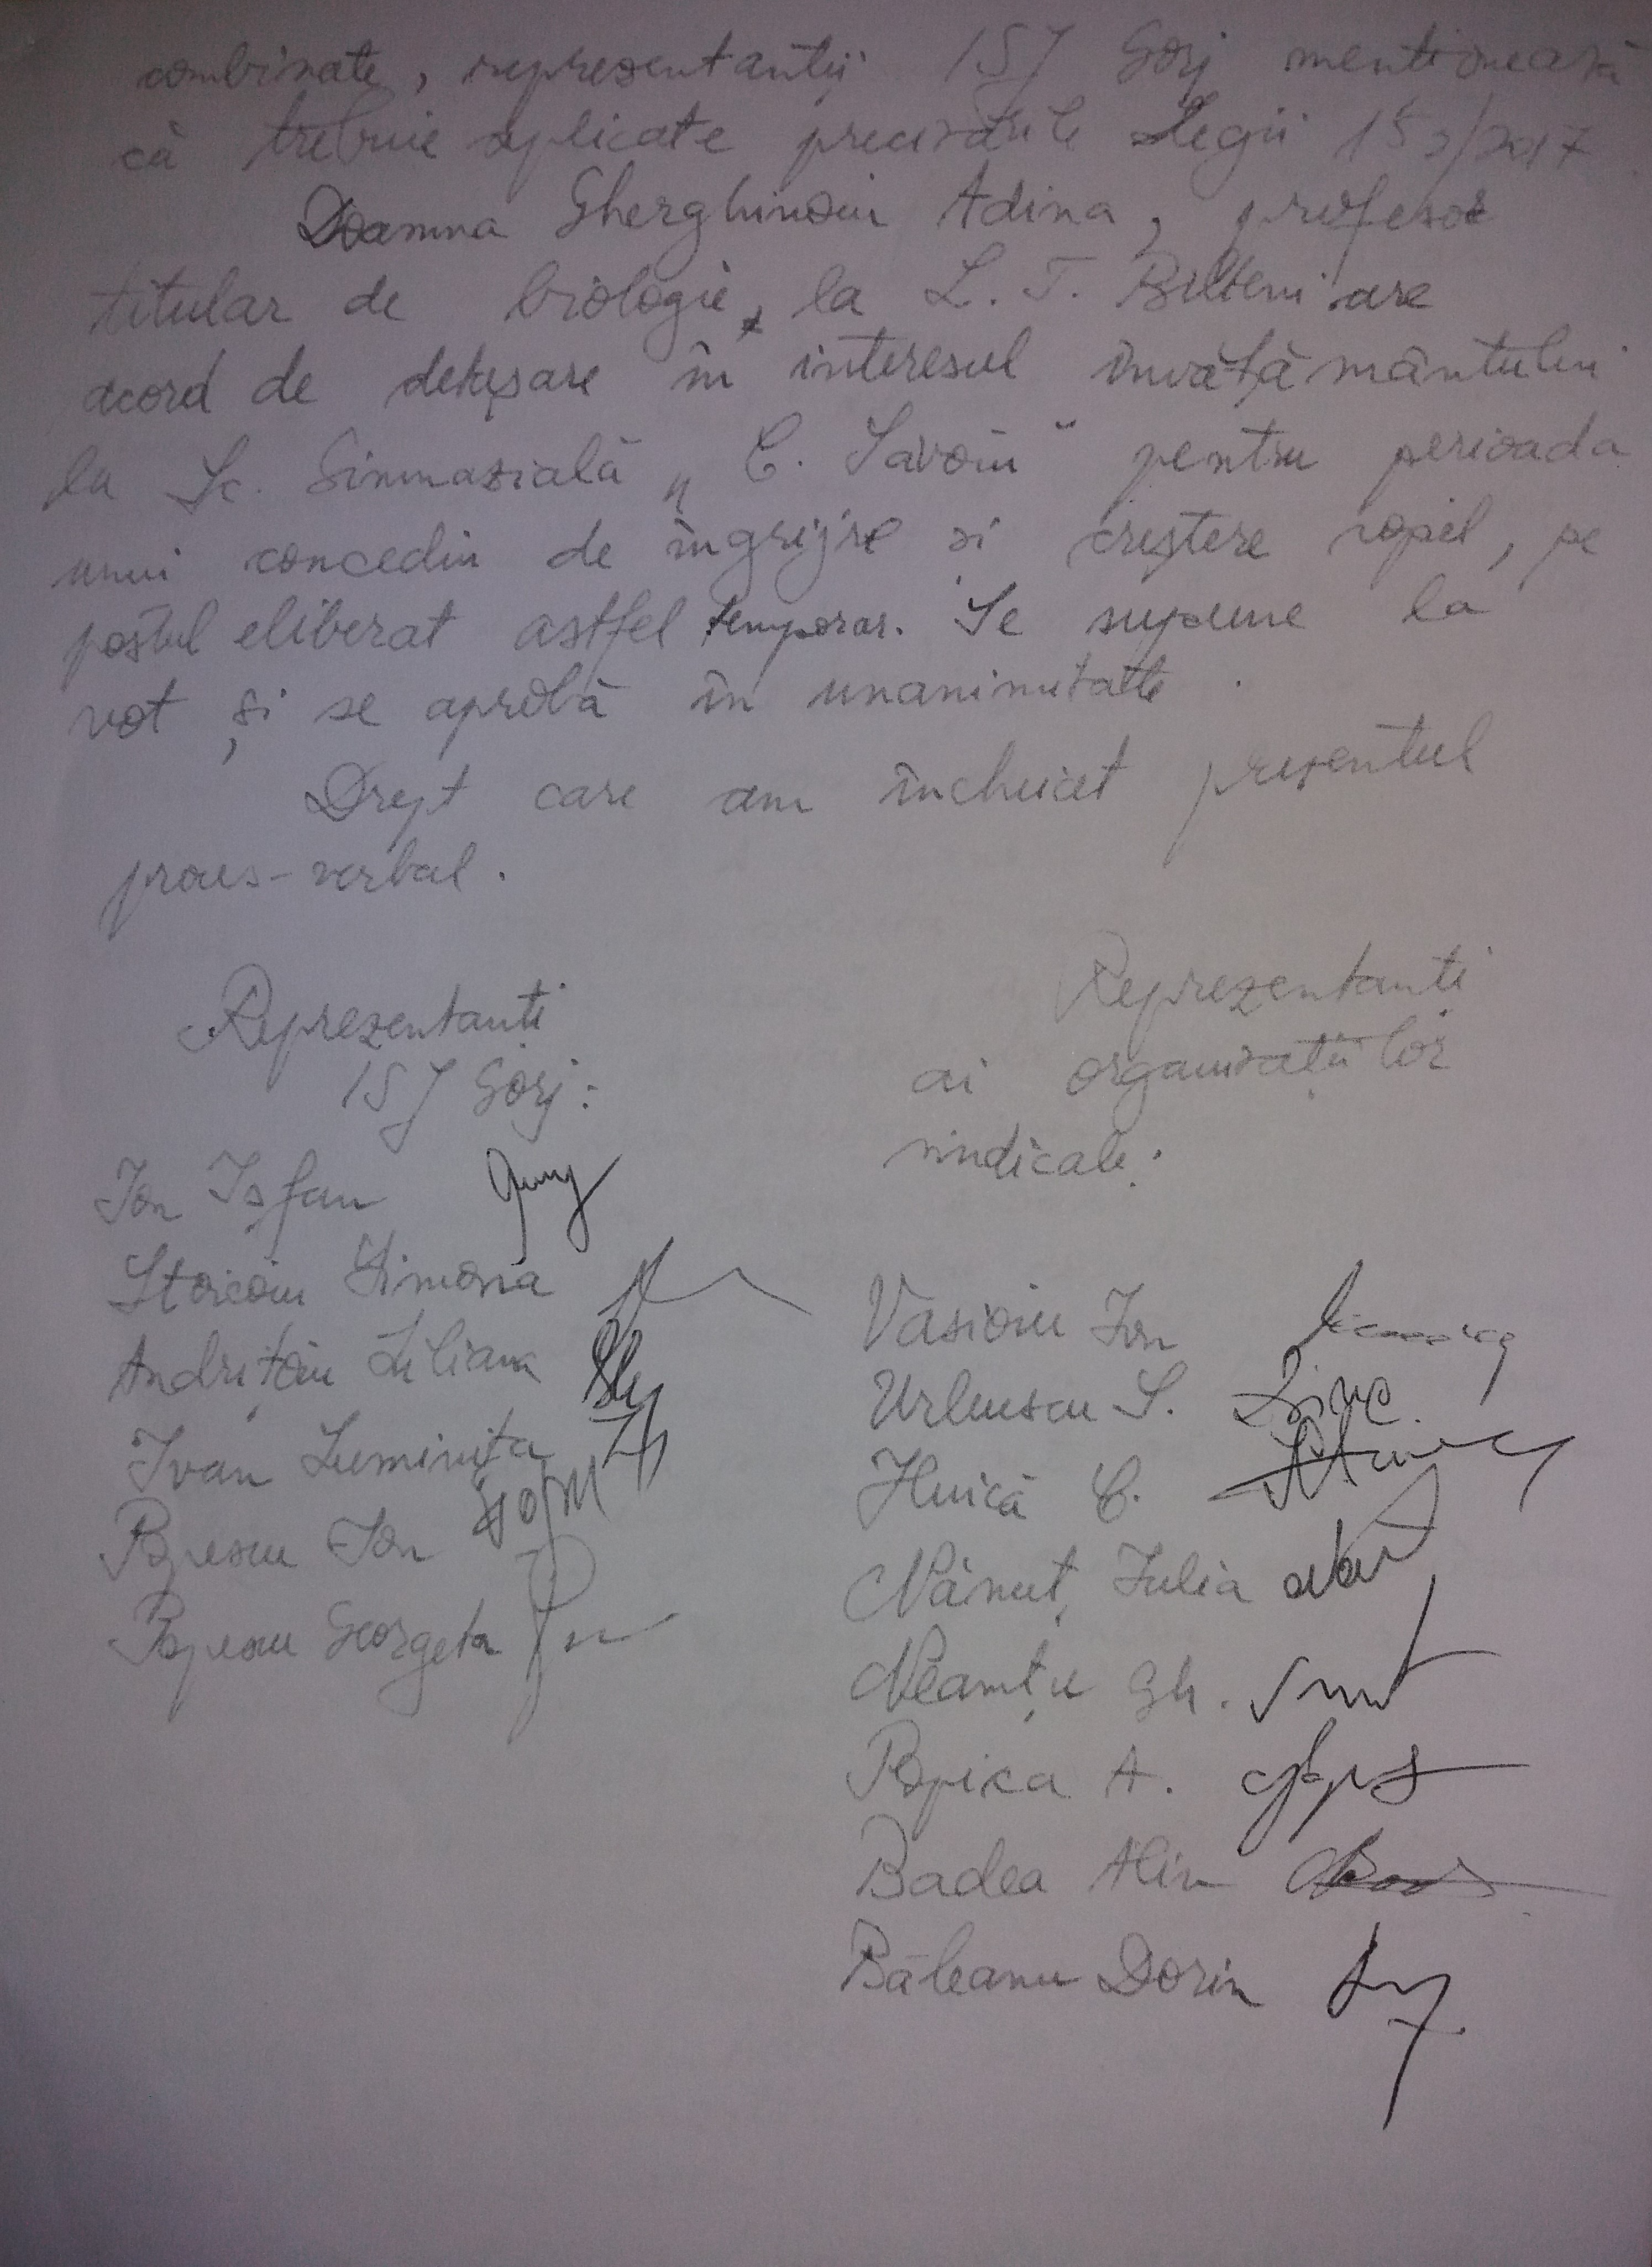 combinate, reprezentanții ISJ Gorj mentionează
că trebuie aplicate precizările Legii 153/2017
Doamna Gherghinoiu Adina, profesor
titular de biologie, la L. T. Bîlteni are
acord de detașare în interesul învățământului
la Sc. Gimnazială „C. Săvoiu" pentru perioada
unui concediu de îngrijire si creștere copil, pe
postul eliberat astfel temporar. Se supune la
vot și se aprobă în unanimitate.
Drept care am încheiat prezentul
proces-verbal.
Reprezentanți
ISJ Gorj:
Ion Ișfan
Stoicoiu Simona
Andrițoiu Liliana
Ivan Luminița
Popescu Ion
Popescu Georgeta
Reprezentanti
ai organizațiilor
sindicale:
Vasioiu Ion
Urlescu S.
Huică C.
Nănuț Iulia
Neamțu Gh.
Popica A.
Badea Alin
Băleanu Dorin